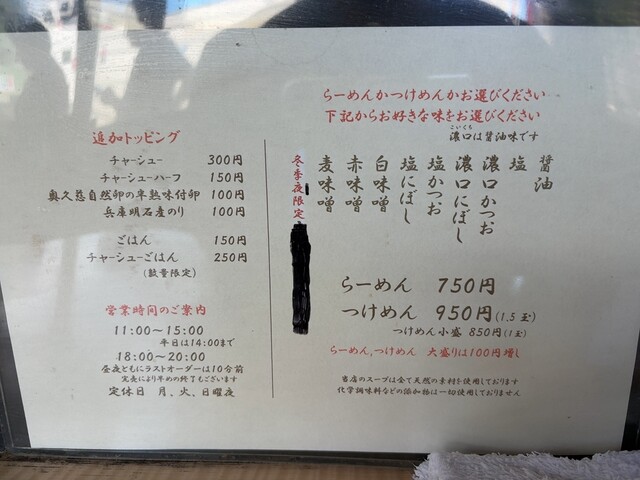 らーめんかつけめんかお選びください
下記からお好きな味をお選びください
こいくち
濃口は醤油味です
醤油
塩
濃口かつお
濃口にぼし
塩かつお
塩にぼし
白味噌
赤味噌
麦味噌
冬季夜限定
らーめん 750円
つけめん 950円(1.5玉)
つけめん小盛 850円(1玉)
らーめん,つけめん 大盛りは100円増し
当店のスープは全て天然の素材を使用しております
化学調味料などの添加物は一切使用しておりません
追加トッピング
チャーシュー 300円
チャーシューハーフ 150円
奥久慈自然卵の半熟味付卵 100円
兵庫明石産のり 100円
ごはん 150円
チャーシューごはん 250円
(数量限定)
営業時間のご案内
11:00～15:00
平日は14:00まで
18:00～20:00
昼夜ともにラストオーダーは10分前
完売により早めの終了もございます
定休日 月、火、日曜夜